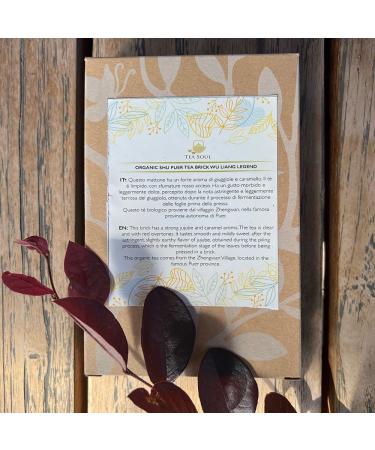 TEA SOUL
ORGANIC SHU PUER TEA BRICK WU LIANG LEGEND
IT: Questo mattone ha un forte aroma di giuggiole e caramello. Il tè
è limpido, con sfumature rosso acceso. Ha un gusto morbido e
leggermente dolce, percepito dopo la nota astringente e leggermente
terrosa del giuggiolo, ottenuta durante il processo di fermentazione
delle foglie prima della pressa.
Questo tè biologico proviene dal villaggio Zhengwan, nella famosa
provincia autonoma di Puer
EN: This brick has a strong jujube and caramel aroma. The tea is clear
and with red overtones. It tastes smooth and mildly sweet after the
astringent, slightly earthy flavor of jujube, obtained during the piling
process, which is the fermentation stage of the leaves before being
pressed in a brick.
The organic tea comes from the Zhengwan Village, located in the
famous Puer province.